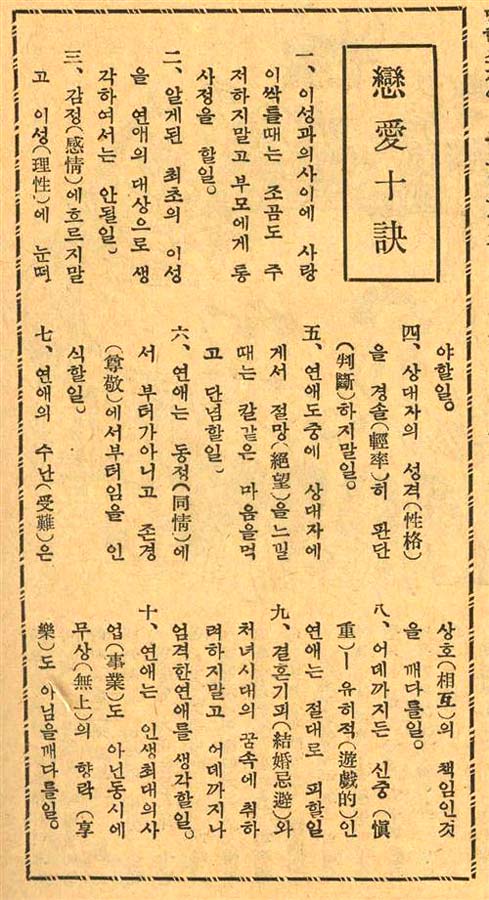 戀愛十訣
一、이성과의사이에 사랑
이싹틀때는 조곰도 주
저하지말고 부모에게 통
사정을 할일。
二、알게된 최초의 이성
을 연애의 대상으로 생
각하여서는 안될일。
三、감정(感情)에흐르지말
고 이성(理性)에 눈떠
야할일。
四、상대자의 성격(性格)
을 경솔(輕率)히 판단
(判斷)하지말일。
五、연애도중에 상대자에
게서 절망(絕望)을느낄
때는 칼같은 마음을먹
고 단념할일。
六、연애는 동정(同情)에
서 부터가아니고 존경
(尊敬)에서부터임을 인
식할일。
七、연애의 수난(受難)은
상호(相互)의 책임인것
을 깨다를일。
八、어데까지든 신중(愼
重)—유히적(遊戱的)인
연애는 절대로 피할일
九、결혼기피(結婚忌避)와
처녀시대의 꿈속에 취하
려하지말고 어데까지나
엄격한연애를 생각할일。
十、연애는 인생최대의사
업(事業)도 아닌동시에
무상(無上)의 향락(享
樂)도 아님을깨다를일。